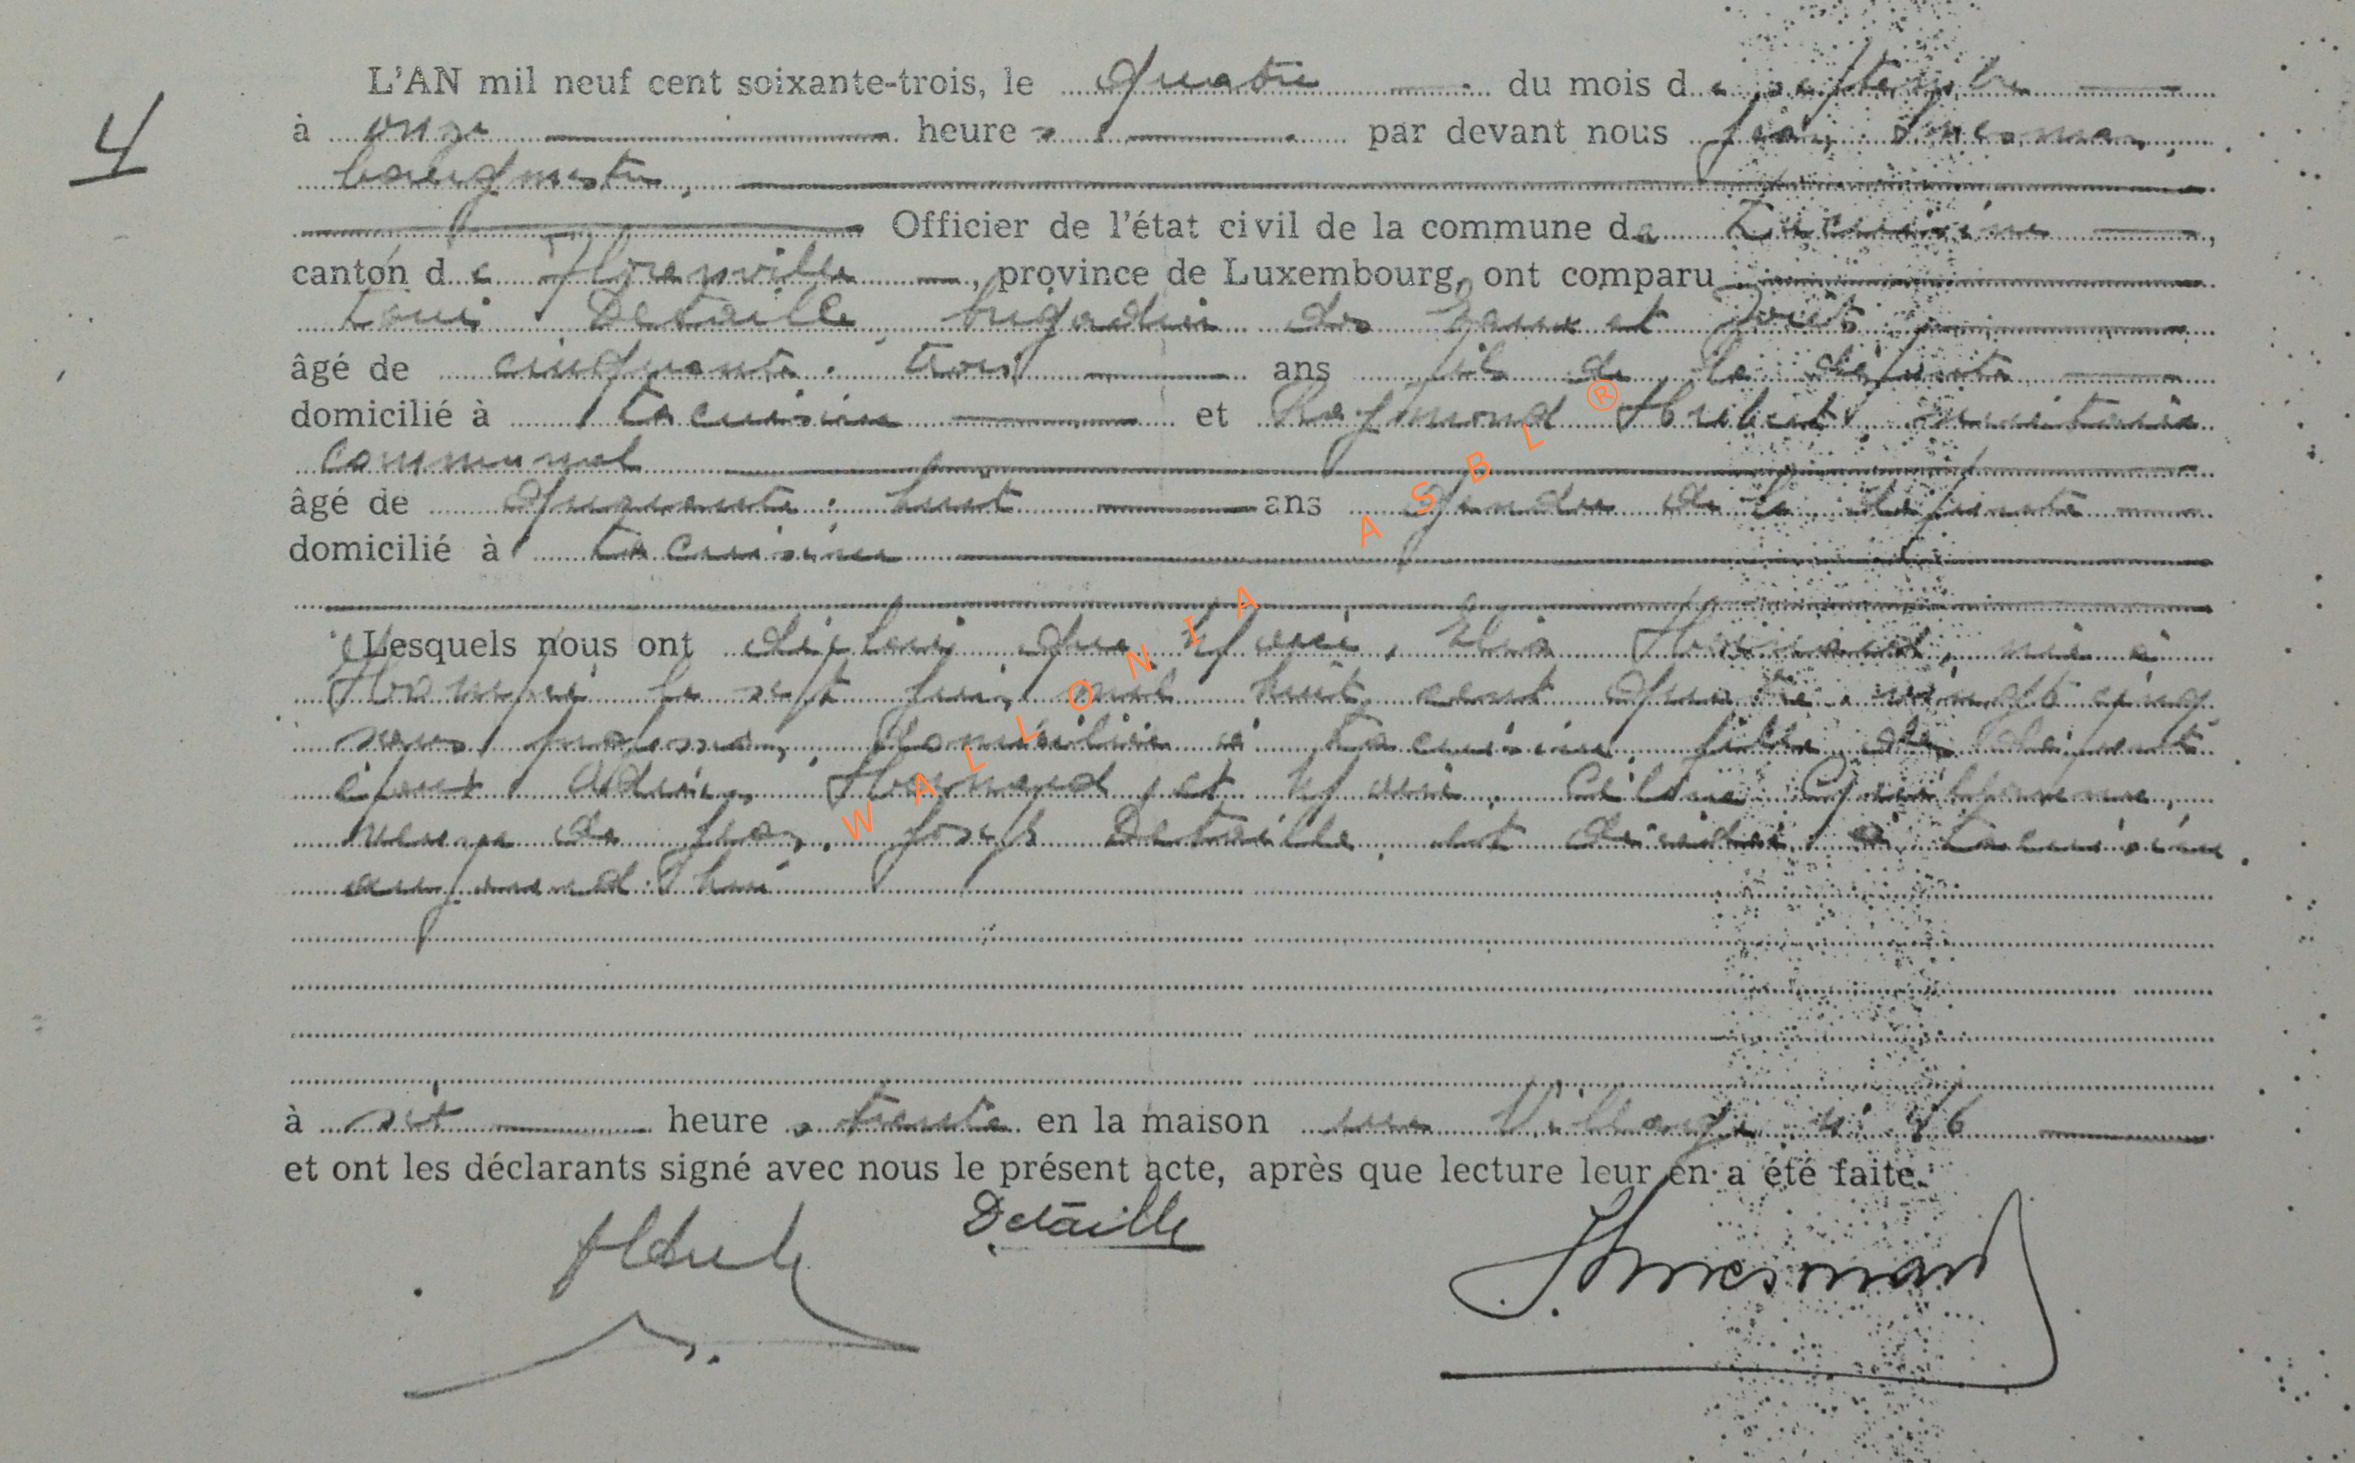 4
L'AN mil neuf cent soixante-trois, le quatre du mois de septembre
à onze heures par devant nous Jean
bourgmestre,
Officier de l'état civil de la commune de Lacuisine,
canton de Florenville, province de Luxembourg, ont comparu
Louis Detaille, brigadier des Eaux et Forêts,
âgé de cinquante-trois ans fils de la défunte
domicilié à Lacuisine et Raymond Hubert,
communal
âgé de quarante-huit ans gendre de la défunte
domicilié à Lacuisine
Lesquels nous ont déclaré que Marie, née à
le sept juin mil huit cent quatre-vingt-cinq
sans profession, domiciliée à Lacuisine, fille des défunts
époux et Marie,
veuve de Jean-Joseph Detaille, est décédée à Lacuisine
aujourd'hui
à sept heures trente en la maison rue Village n°
et ont les déclarants signé avec nous le présent acte, après que lecture leur en a été faite.
Detaille
WALLONIA ASBL ®